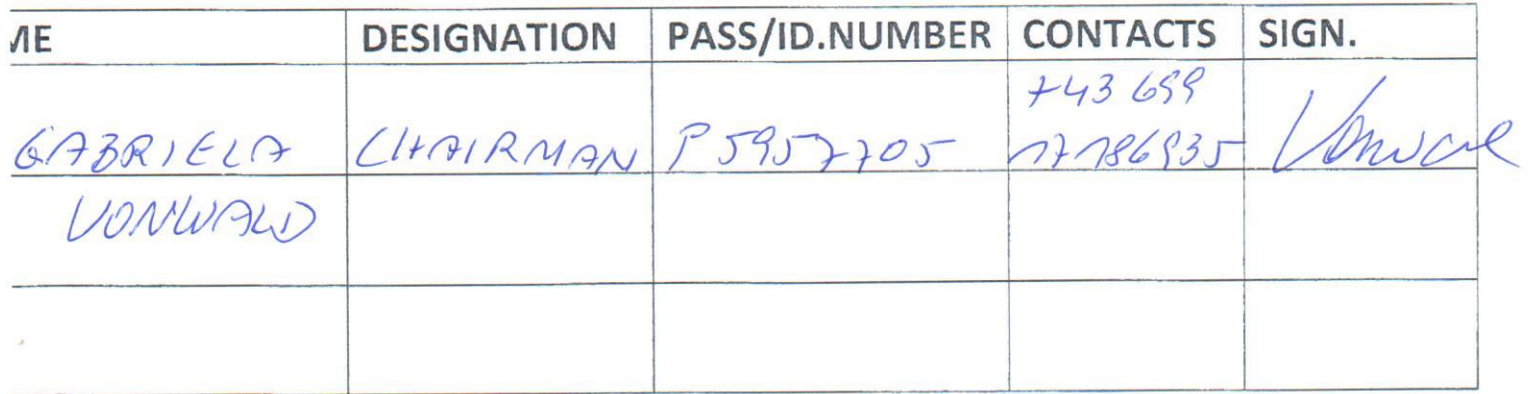 ME DESIGNATION PASS/ID.NUMBER CONTACTS SIGN.
+43 699
GABRIELA CHAIRMAN P5957705 17186935
VONWALD